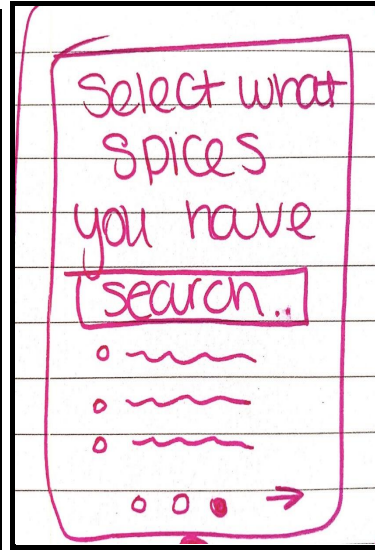 Select what
spices
you have
search..